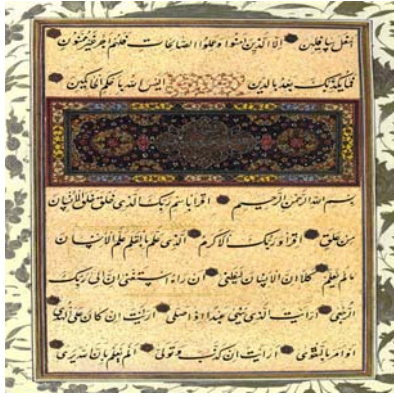 اسفل سافلین الا الذین امنوا وعملوا الصالحات فلهم اجر غیر ممنون
فما یکذبک بعد بالدین الیس الله باحکم الحاکمین
بسم الله الرحمن الرحیم اقرا باسم ربک الذی خلق خلق الانسان
من علق اقرا وربک الاکرم الذی علم بالقلم علم الانسان
مالم یعلم کلا ان الانسان لیطغی ان راه استغنی ان الی ربک
الرجعی ارایت الذی ینهی عبدا اذا صلی ارایت ان کان علی الهدی
او امر بالتقوی ارایت ان کذب وتولی الم یعلم بان الله یری